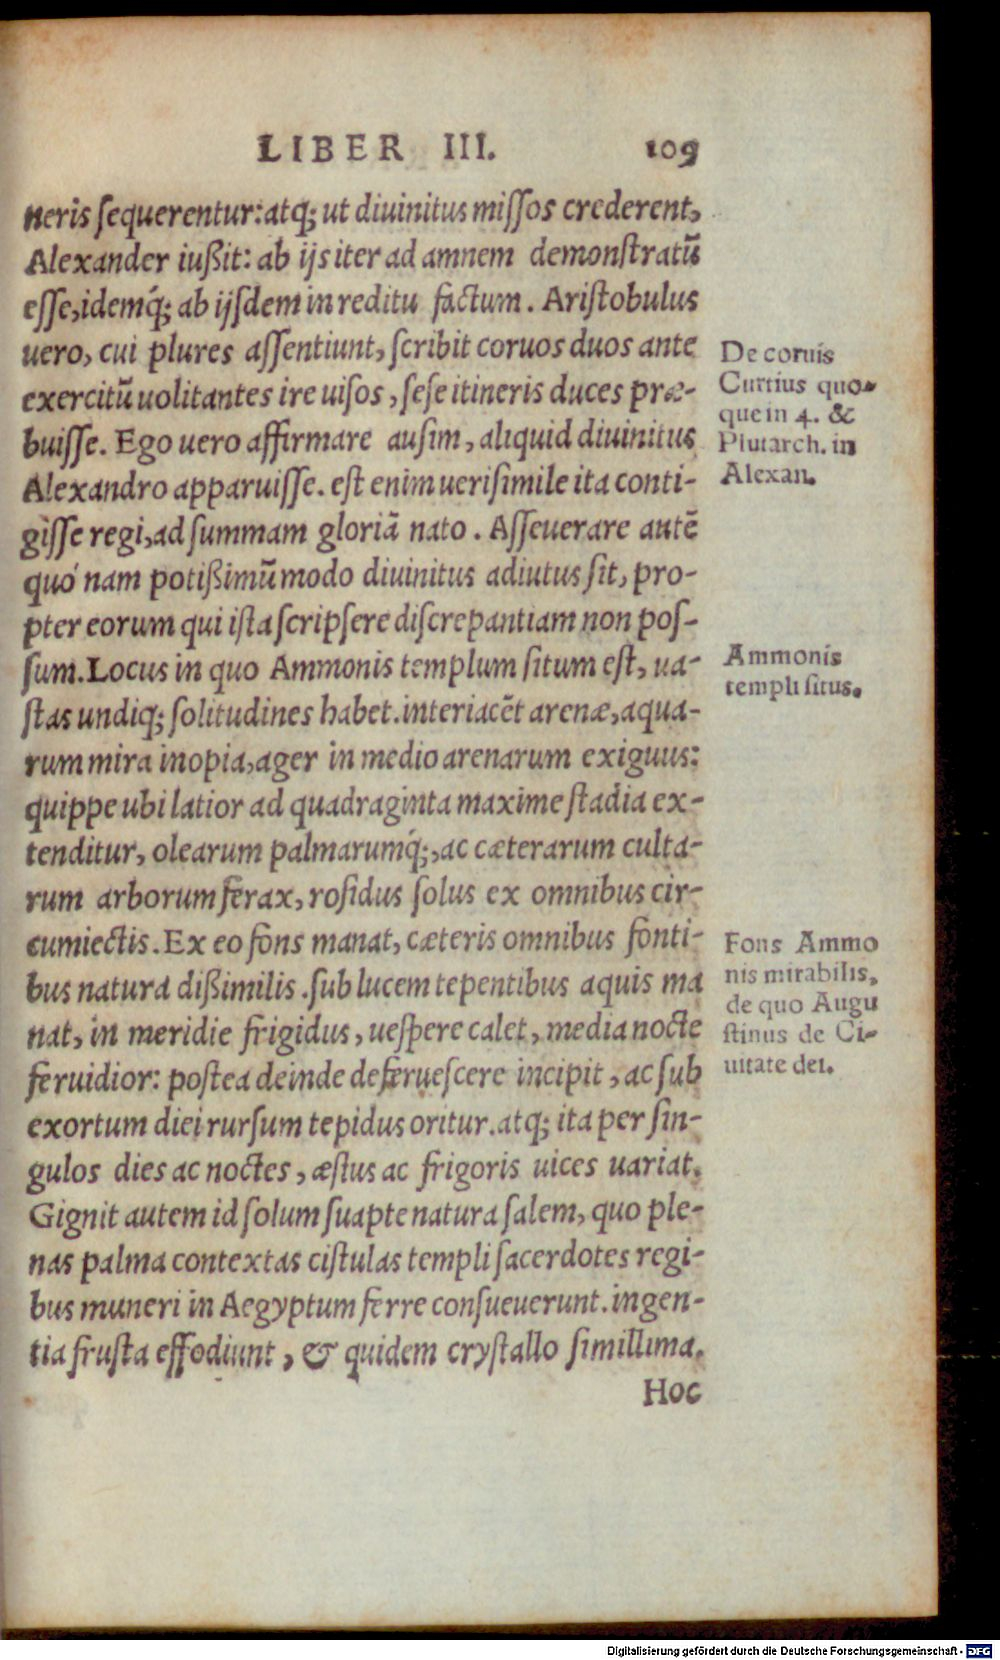 LIBER III. 109
neris sequerentur: atq; ut diuinitus missos crederent,
Alexander iußit: ab ijs iter ad amnem demonstratũ
esse, idemq́; ab ijsdem in reditu factum. Aristobulus
uero, cui plures assentiunt, scribit coruos duos ante
exercitũ uolitantes ire uisos, sese itineris duces præ-
buisse. Ego uero affirmare ausim, aliquid diuinitus
Alexandro apparuisse. est enim uerisimile ita conti-
gisse regi, ad summam gloriã nato. Asseuerare autẽ
quó nam potißimũ modo diuinitus adiutus sit, pro-
pter eorum qui ista scripsere discrepantiam non pos-
sum. Locus in quo Ammonis templum situm est, ua-
stas undiq; solitudines habet. interiacẽt arenæ, aqua-
rum mira inopia, ager in medio arenarum exiguus:
quippe ubi latior ad quadraginta maxime stadia ex-
tenditur, olearum palmarumq́;, ac cæterarum culta-
rum arborum ferax, rosidus solus ex omnibus cir-
cumiectis. Ex eo fons manat, cæteris omnibus fonti-
bus natura dißimilis. sub lucem tepentibus aquis ma
nat, in meridie frigidus, uespere calet, media nocte
feruidior: postea deinde deferuescere incipit, ac sub
exortum diei rursum tepidus oritur. atq; ita per sin-
gulos dies ac noctes, æstus ac frigoris uices uariat.
Gignit autem id solum suapte natura salem, quo ple-
nas palma contextas cistulas templi sacerdotes regi-
bus muneri in Aegyptum ferre consueuerunt. ingen-
tia frusta effodiunt, & quidem crystallo simillima.
Hoc
De coruis
Curtius quo-
que in 4. &
Plutarch. in
Alexan.
Ammonis
templi situs.
Fons Ammo
nis mirabilis,
de quo Augu
stinus de Ci-
uitate dei.
Digitalisierung gefördert durch die Deutsche Forschungsgemeinschaft - DFG